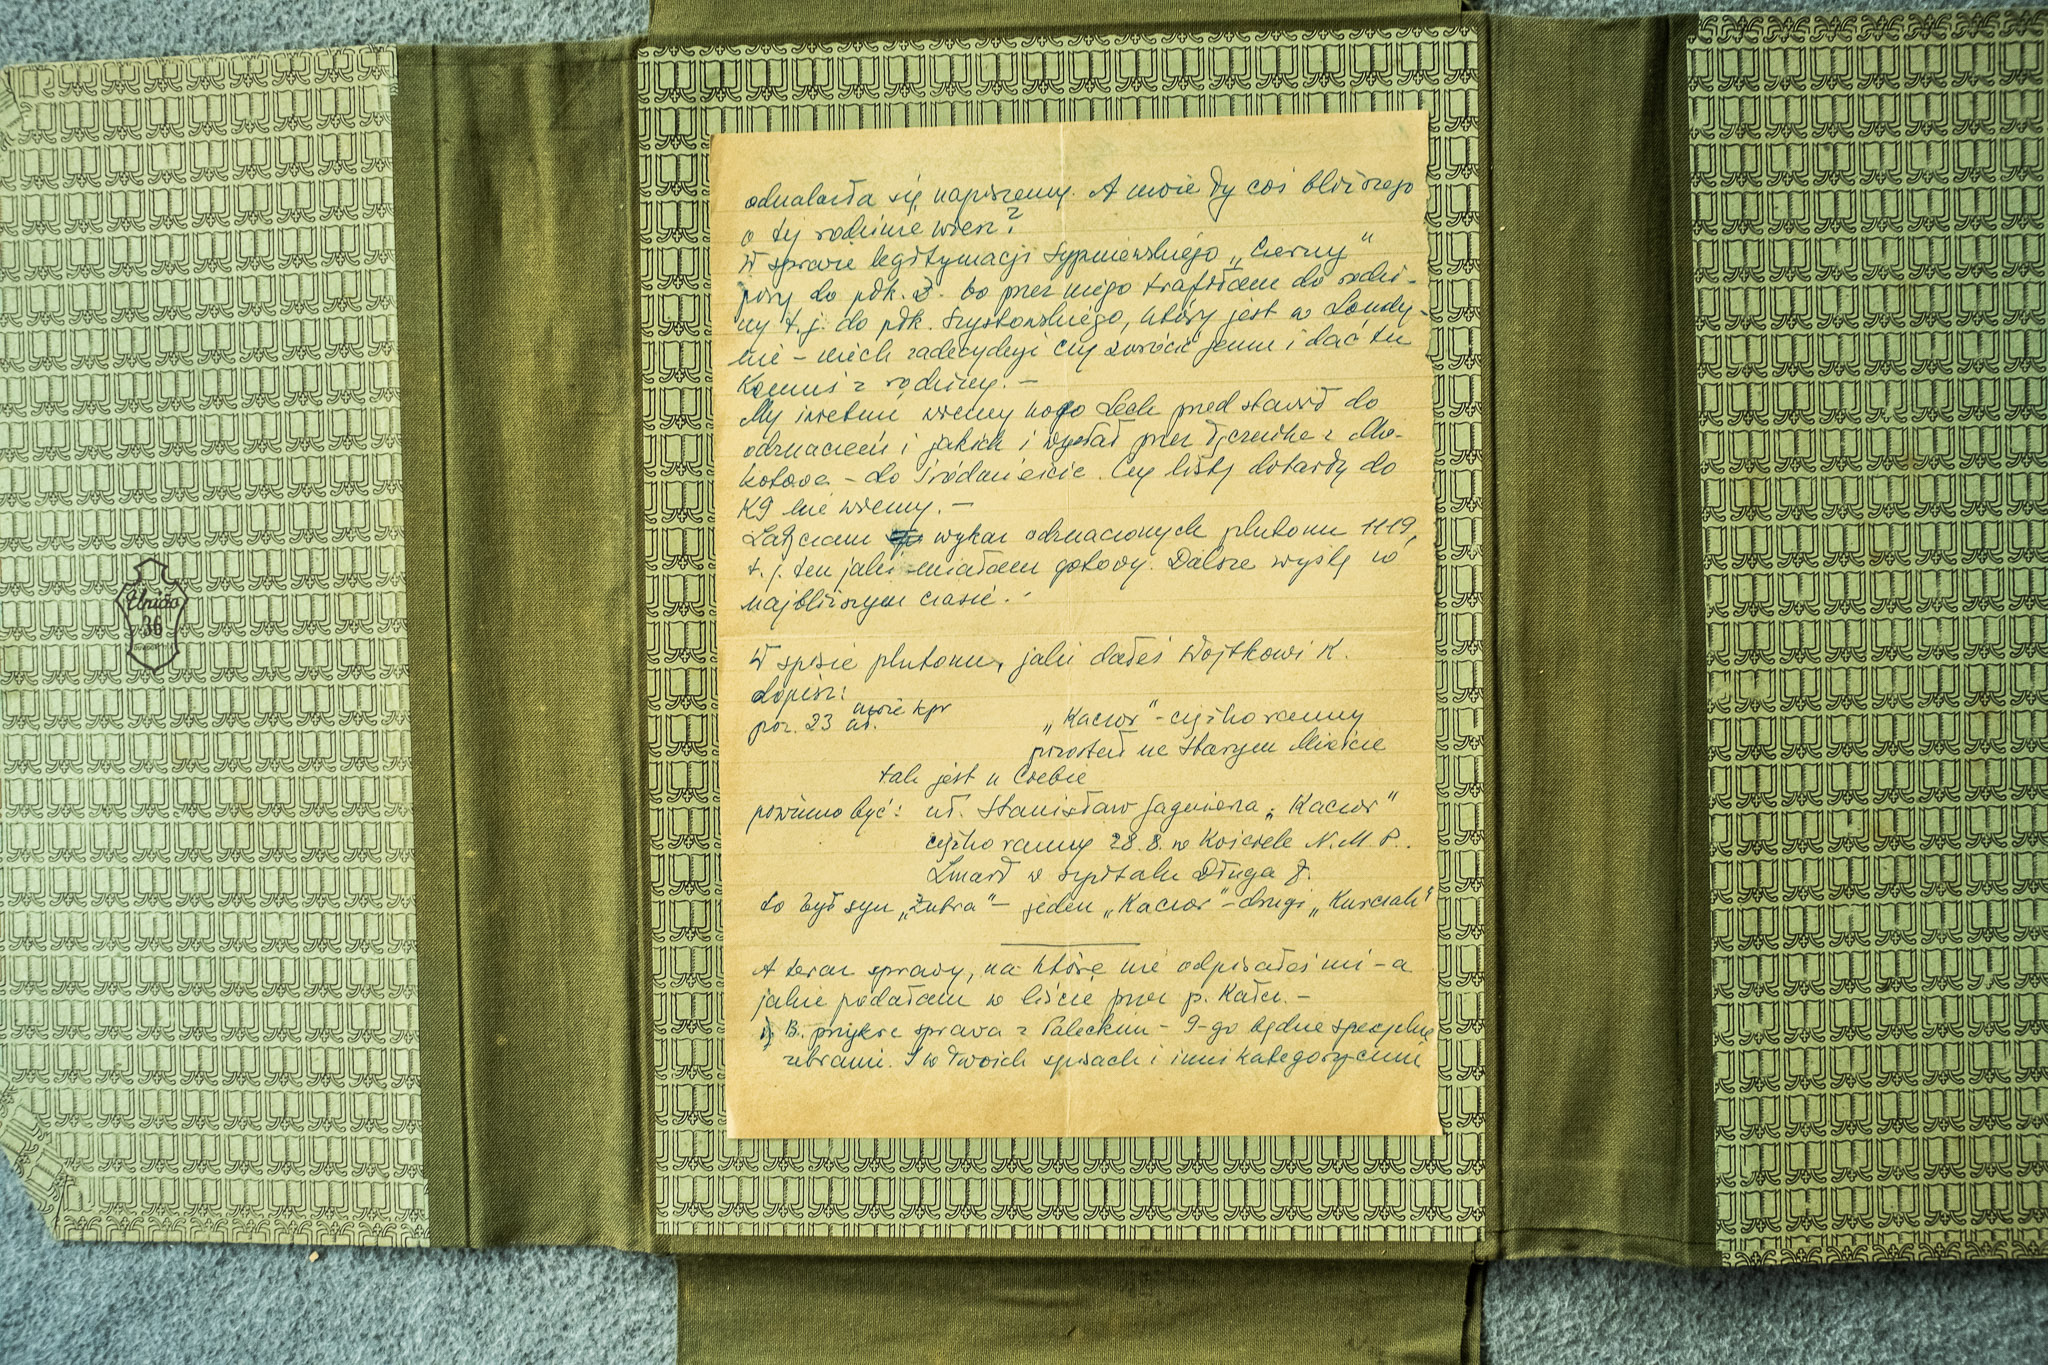 odnalazła się napiszemy. A może Ty coś bliższego
o tej rodzinie wiesz?
W sprawie legitymacji Sypniewskiego „Czerny"
pisz do płk. Ż. bo przez niego trafiłam do rodzi-
ny t.j. do płk. Szystowskiego, który jest w Londy-
nie - niech zadecyduje czy zwrócić jemu i dać tu
komuś z rodziny. -
My świetnie wiemy kogo Lech przedstawił do
odznaczeń i jakich i wysłał przez łączniczkę z Mo-
kotowa - do Śródmieście. Czy listy dotarły do
K9 nie wiemy. -
Łączam wykaz odznaczonych plutonu 1119,
t.j. ten jaki miałam gotowy. Dalsze wyślę w
najbliższym czasie. -
W spisie plutonu, jaki dałeś Wojtkowi K.
dopisz:
poz. 23 uł. może kpr
„Kaczor" - ciężko ranny
pozostał na Starym Mieście
tak jest u Ciebie
powinno być: uł. Stanisław Jagmierza „Kaczor"
ciężko ranny 28.8. w Kościele N.M.P.
Zmarł w szpitalu Długa 7.
to był syn „Żubra" - jeden „Kaczor" - drugi „Kurciak"
A teraz sprawy, na które nie odpisałeś mi - a
jakie podałam w liście przez p. Kału. -
1) B. przykra sprawa z Paleckim - 9-go będzie specjalne
zebranie. I w Twoich spisach i inni kategorycznie
União
36